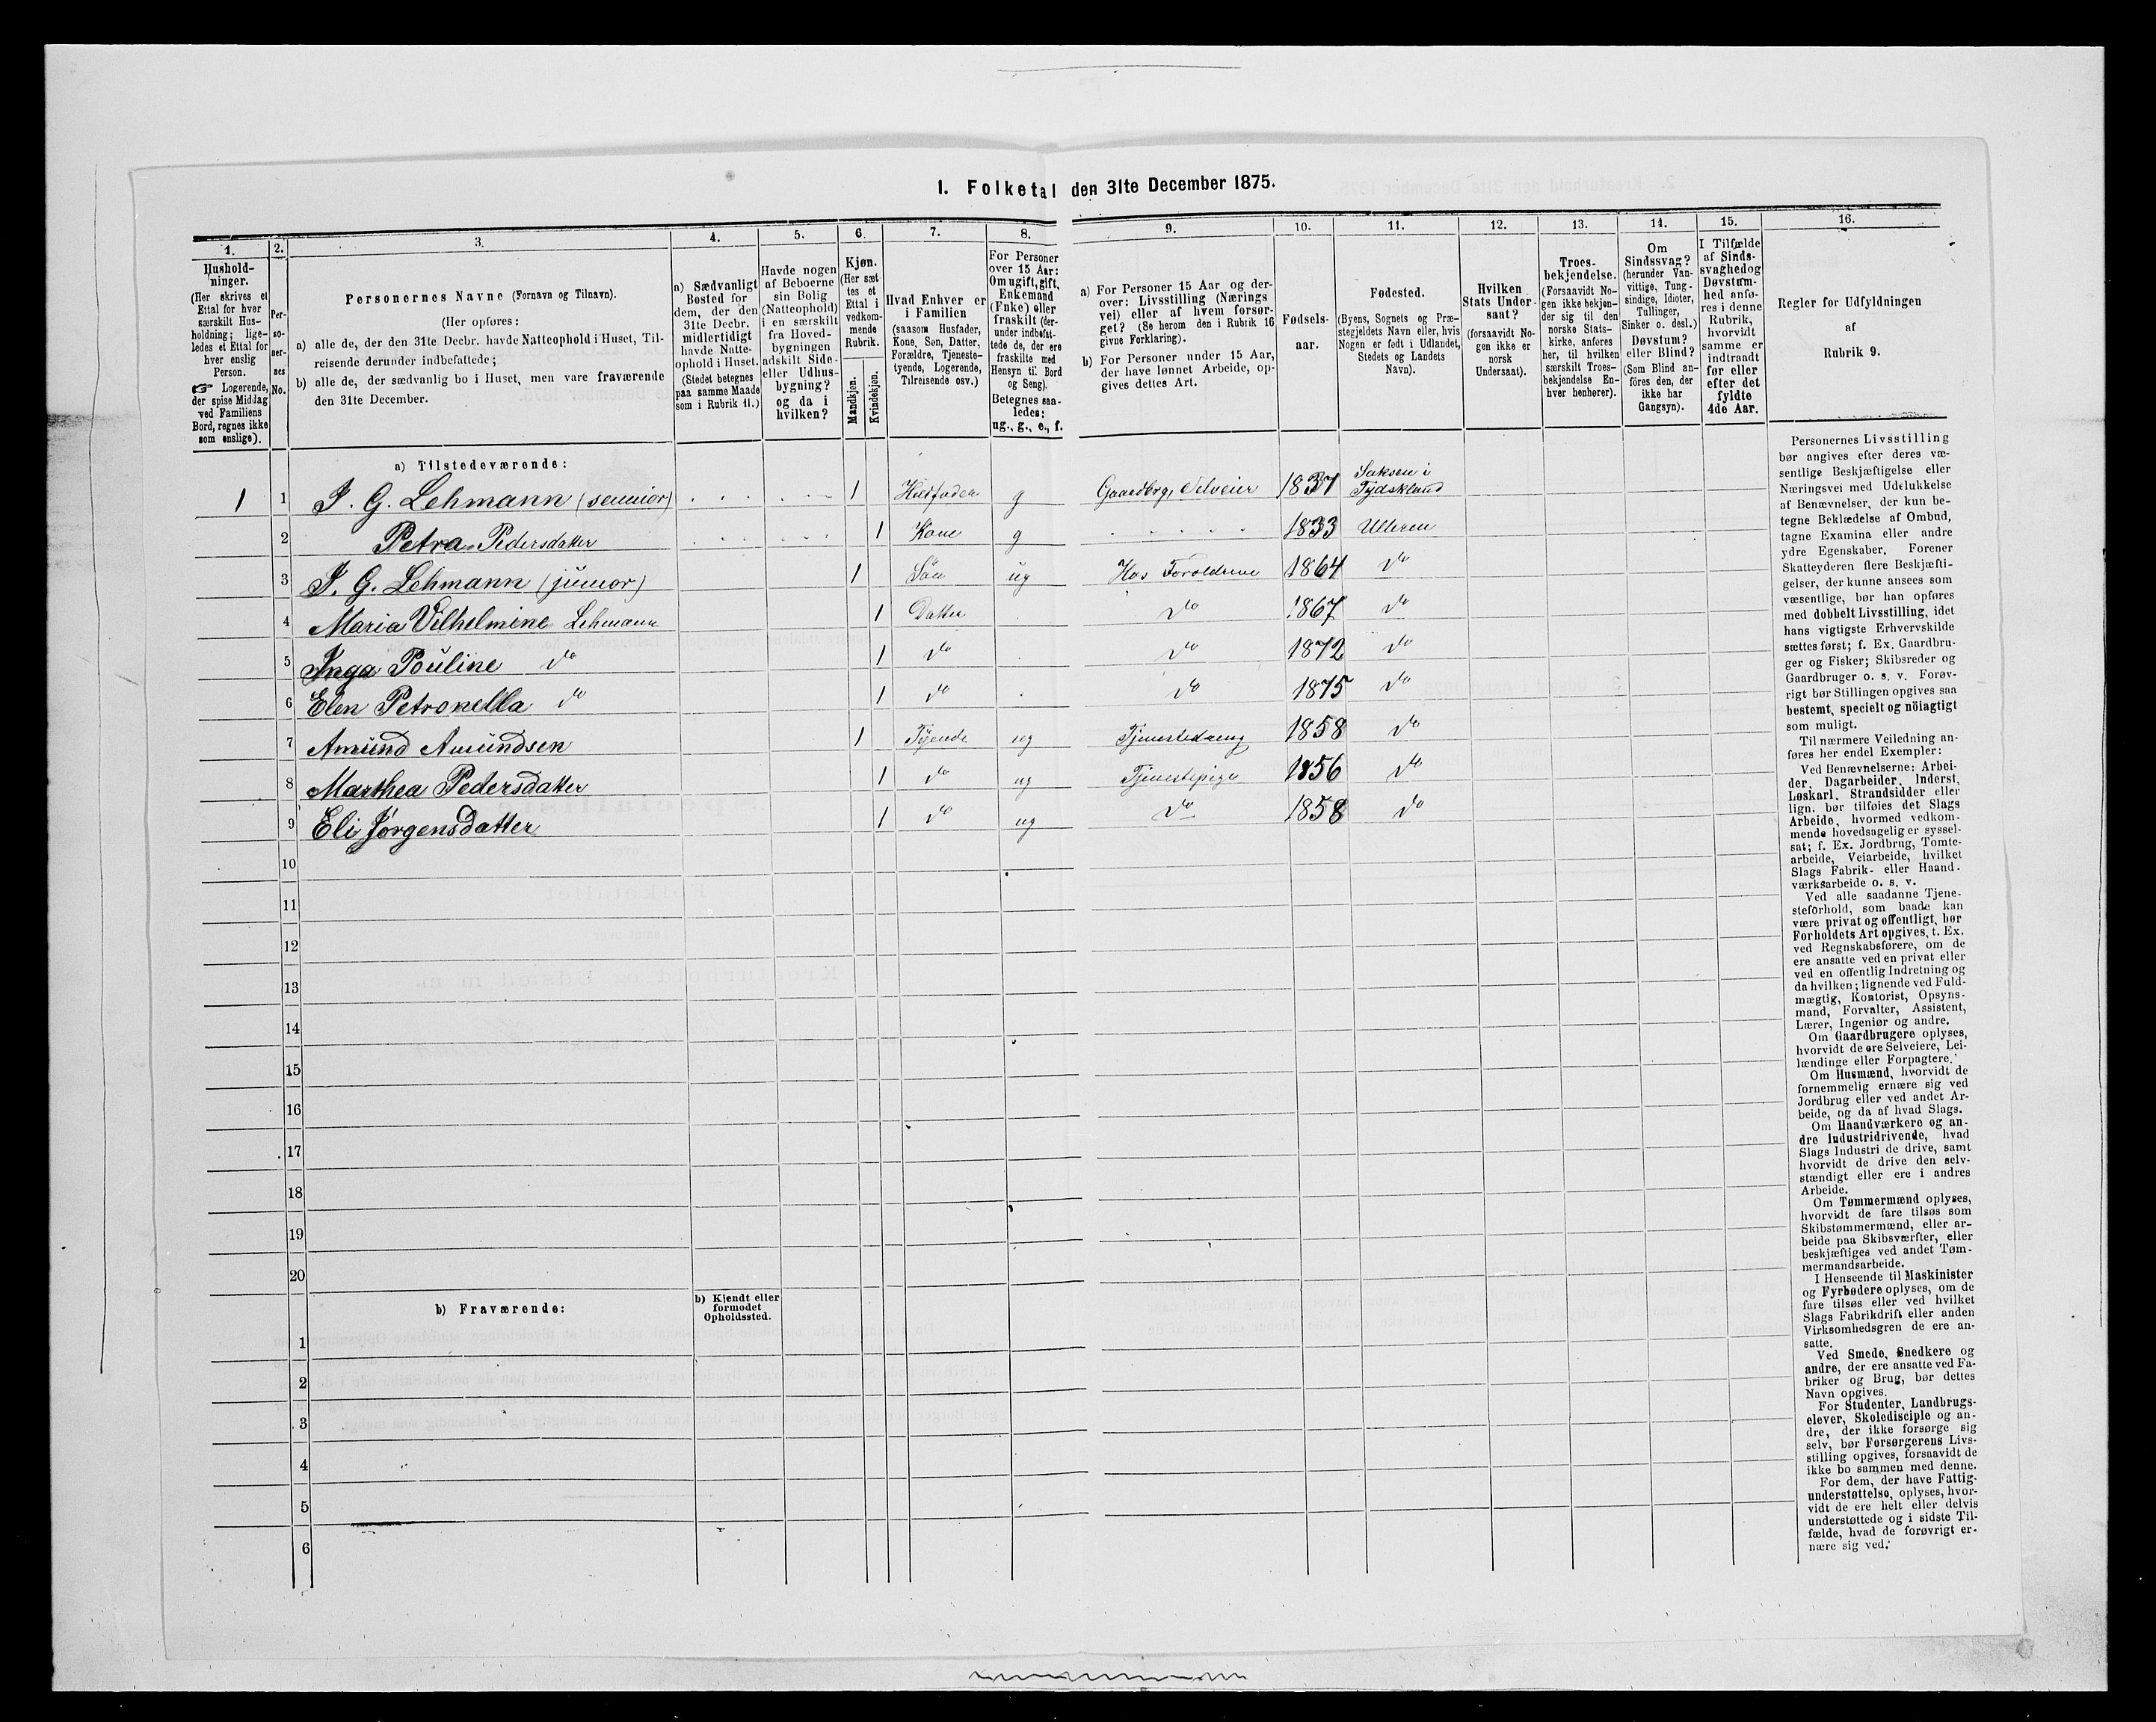 I. Folketal den 31te December 1875.
1. 2. 3. 4. 5. 6. 7. 8. 9. 10. 11. 12. 13. 14. 15. 16.
Hushold-
ninger.
(Her skrives et
Ettal for hver
særskilt Hus-
holdning; lige-
ledes et Ettal for
hver enslig
Person.
☞ Logerende,
der spise Middag
ved Familiens
Bord, regnes ikke
som enslige).
Per-
so-
ner-
nes
No.
Personernes Navne (Fornavn og Tilnavn).
(Her opføres:
a) alle de, der den 31te Decbr. havde Natteophold i Huset, Til-
reisende derunder indbefattede;
b) alle de, der sædvanlig bo i Huset, men vare fraværende
den 31te December.
a) Sædvanligt
Bosted for
dem, der den
31te Decbr.
midlertidigt
havde Natte-
ophold i Huset.
(Stedet betegnes
paa samme Maade
som i Rubrik 11.)
Havde nogen
af Beboerne
sin Bolig
(Natteophold)
i en særskilt
fra Hoved-
bygningen
adskilt Side-
eller Udhus-
bygning?
og da i
hvilken?
Kjøn.
(Her sæt
tes et
Ettal i
vedkom-
mende
Rubrik.
Mandkjøn.
Kvindekjøn.
Hvad Enhver er
i Familien
(saasom Husfader,
Kone, Søn, Datter,
Forældre, Tjeneste-
tyende, Logerende,
Tilreisende osv.)
For Personer
over 15 Aar:
Om ugift, gift,
Enkemand
(Enke) eller
fraskilt (der-
under indbefat-
tede de, der ere
fraskilte med
Hensyn til Bord
og Seng).
Betegnes saa-
ledes:
ug., g., e., f.
a) For Personer 15 Aar og der-
over: Livsstilling (Nærings
vei) eller af hvem forsør-
get? (Se herom den i Rubrik 16
givne Forklaring).
b) For Personer under 15 Aar,
der have lønnet Arbeide, op-
gives dettes Art.
Fødsels-
aar.
Fødested.
(Byens, Sognets og Præ-
stegjeldets Navn eller, hvis
Nogen er født i Udlandet,
Stedets og Landets
Navn).
Hvilken
Stats Under-
saat?
(forsaavidt No-
gen ikke er
norsk
Undersaat).
Troes-
bekjendelse.
(Forsaavidt No-
gen ikke bekjen-
der sig til den
norske Stats-
kirke, anføres
her, til hvilken
særskilt Troes-
bekjendelse En-
hver henhører).
Om
Sindssvag?
(herunder Van-
vittige, Tung-
sindige, Idioter,
Tullinger,
Sinker o. desl.)
Døvstum?
eller Blind?
(Som Blind an-
føres den, der
ikke har
Gangsyn).
I Tilfælde
af Sinds-
svaghed og
Døvstum-
hed anfø-
res i denne
Rubrik,
hvorvidt
samme er
indtraadt
før eller
efter det
fyldte
4de Aar.
Regler for Udfyldningen
af
Rubrik 9.
a) Tilstedeværende:
1 1 J. G. Lehmann (sennior) 1 Husfader g Gaardbrg, Selveier 1837 Saksen i
Tydskland
2 Petra Pedersdatter 1 Kone g 1833 Ulleren
3 J. G. Lehmann (junior) 1 Søn ug Hos Foroldrene 1864 do
4 Maria Vilhelmine Lehmann 1 Datter do 1867 do
5 Inga Pouline do 1 do do 1872 do
6 Elen Petronella do 1 do do 1875 do
7 Amund Amundsen 1 Tyende ug Tjenestedreng 1858 do
8 Marthea Pedersdatter 1 do ug Tjenestepige 1856 do
9 Eli Jørgensdatter 1 do ug do 1858 do
10
11
12
13
14
15
16
17
18
19
20
b) Fraværende:
b) Kjendt eller
formodet
Opholdssted.
1
2
3
4
5
6
Personernes Livsstilling
bør angives efter deres væ-
sentlige Beskjæftigelse eller
Næringsvei med Udelukkelse
af Benævnelser, der kun be-
tegne Beklædelse af Ombud,
tagne Examina eller andre
ydre Egenskaber. Forener
Skatteyderen flere Beskjæfti-
gelser, der kunne ansees som
væsentlige, bør han opføres
med dobbelt Livsstilling, idet
hans vigtigste Erhvervskilde
sættes først; f. Ex. Gaardbru-
ger og Fisker; Skibsreder og
Gaardbruger o. s. v. Forøv-
rigt bør Stillingen opgives saa
bestemt, specielt og nöiagtigt
som muligt.
Til nærmere Veiledning an-
føres her endel Exempler:
Ved Benævnelserne: Arbei-
der, Dagarbeider, Inderst,
Løskarl, Strandsidder eller
lign. bør tilføies det Slags
Arbeide, hvormed vedkom-
mende hovedsagelig er syssel-
sat; f. Ex. Jordbrug, Tomte-
arbeide, Veiarbeide, hvilket
Slags Fabrik- eller Haand-
værksarbeide o. s. v.
Ved alle saadanne Tjene-
steforhold, som baade kan
være privat og offentligt, bør
Forholdets Art opgives, t. Ex.
ved Regnskabsførere, om de
ere ansatte ved en privat eller
ved en offentlig Indretning og
da hvilken; lignende ved Fuld-
mægtig, Kontorist, Opsyns-
mand, Forvalter, Assistent,
Lærer, Ingeniør og andre.
Om Gaardbrugere oplyses,
hvorvidt de ere Selveiere, Lei-
lændinge eller Forpagtere.
Om Husmænd, hvorvidt de
fornemmelig ernære sig ved
Jordbrug eller ved andet Ar-
beide, og da af hvad Slags.
Om Haandværkere og an-
dre Industridrivende, hvad
Slags Industri de drive, samt
hvorvidt de drive den selv-
stændigt eller ere i andres
Arbeide.
Om Tømmermænd oplyses,
hvorvidt de fare tilsøs som
Skibstømmermænd, eller ar-
beide paa Skibsværfter, eller
beskjæftiges ved andet Tøm-
mermandsarbeide.
I Henseende til Maskinister
og Fyrbødere oplyses, om de
fare tilsøs eller ved hvilket
Slags Fabrikdrift eller anden
Virksomhedsgren de ere an-
satte.
Ved Smede, Snedkere og
andre, der ere ansatte ved Fa-
briker og Brug, bør dettes
Navn opgives.
For Studenter, Landbrugs-
elever, Skoledisciple og an-
dre, der ikke forsørge sig
selv, bør Forsørgerens Livs-
stilling opgives, forsaavidt de
ikke bo sammen med denne.
For dem, der have Fattig-
understøttelse, oplyses, hvor-
vidt de ere helt eller delvis
understøttede og i sidste Til-
fælde, hvad de forøvrigt er-
nære sig ved.